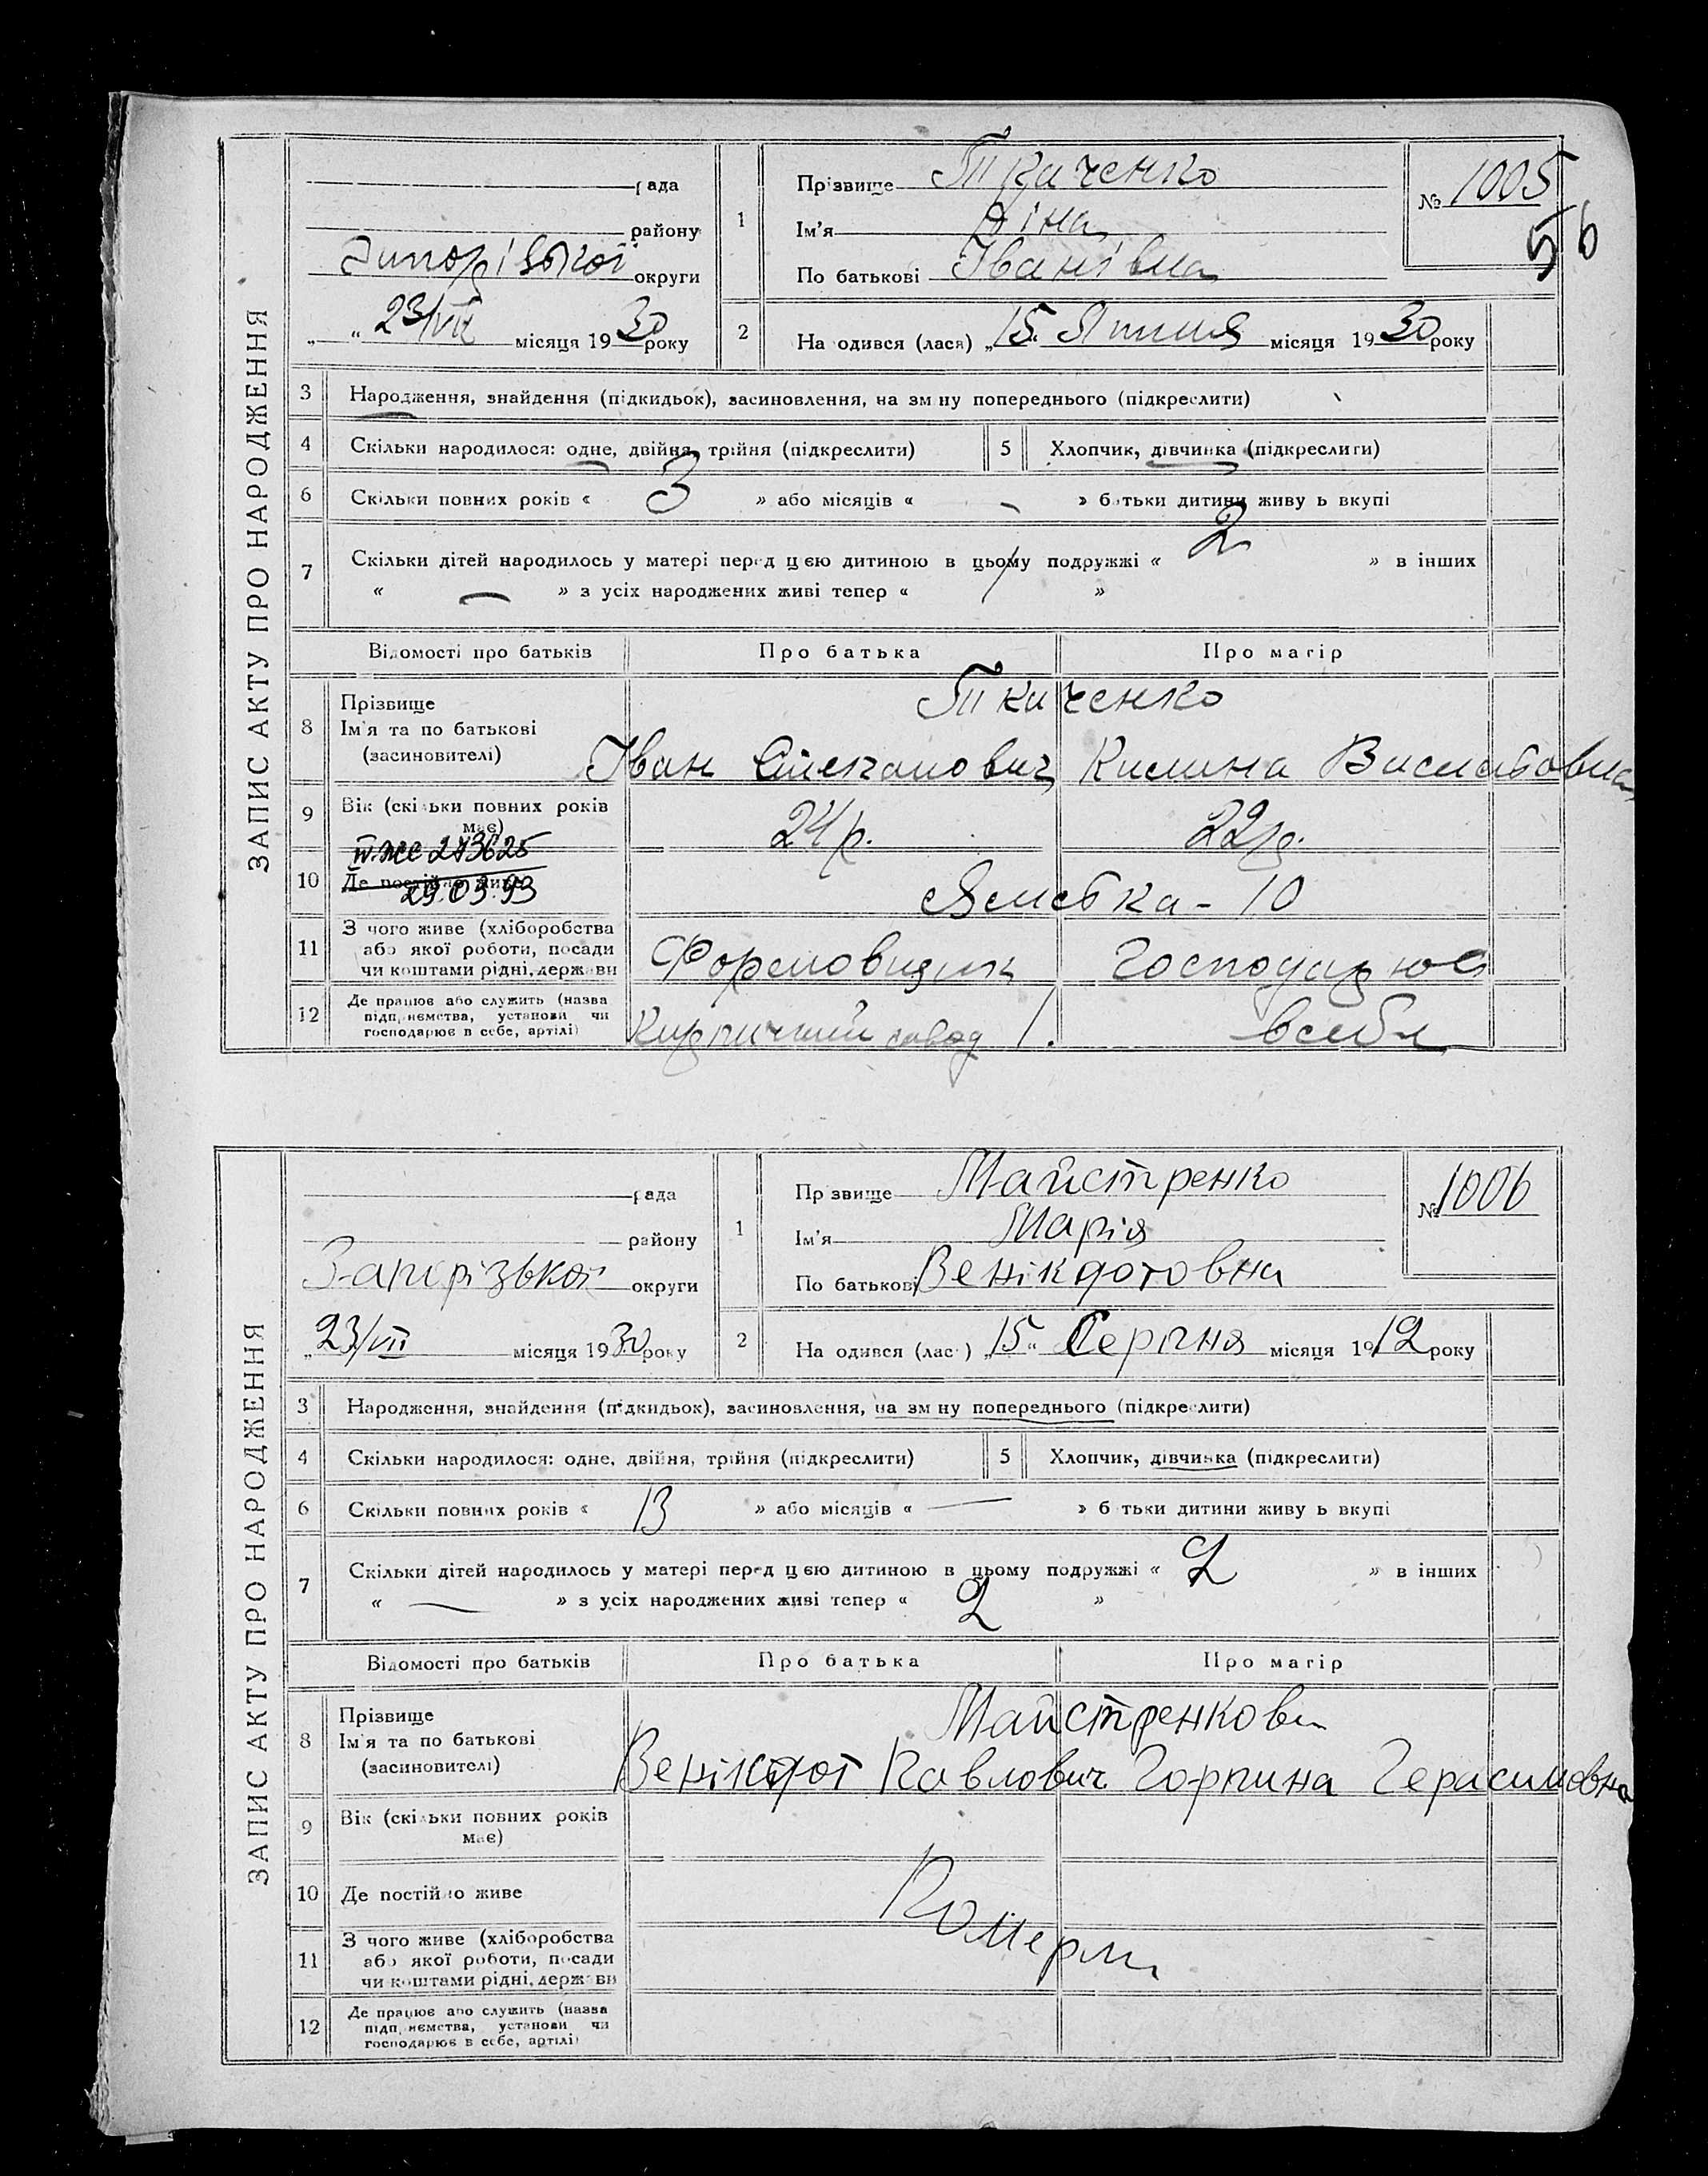 ЗАПИС АКТУ ПРО НАРОДЖЕННЯ
рада
району
Запорізької округи
„ “ 23/VII місяця 1930 року
1
Прізвище Ткаченко
Ім'я Ніна
По батькові Іванівна
№ 1005
56
2
На одився (лася) „15“ Липня місяця 1930 року
3 Народження, знайдення (підкидьок), засиновлення, на зм ну попереднього (підкреслити)
4 Скільки народилося: одне, двійня, трійня (підкреслити) 5 Хлопчик, дівчинка (підкреслити)
6 Скільки повних років « 3 » або місяців « - » б тьки дитини живу ь вкупі
7 Скільки дітей народилось у матері перед цею дитиною в цьому подружжі « 2 » в інших
« — » з усіх народжених живі тепер « / »
Відомості про батьків Про батька Про матір
8 Прізвище
Ім'я та по батькові
(засиновителі)
Ткаченко
Іван Степанович Килина
9 Вік (скільки повних років має) 24 р. 22 р.
273625
29.03.93
10 Де постійно живе 10
11 З чого живе (хліборобства або якої роботи, посади чи коштами рідні, держави Формовщик Господарює
12 Де працює або служить (назва підприємства, установи чи господарює в себе, артілі) Кирпичний завод 1. в себе
ЗАПИС АКТУ ПРО НАРОДЖЕННЯ
рада
району
Запорізької округи
„23/VII місяця 1930 року
1
Пр звище Майстренко
Ім'я Марія
По батькові Венікдотовна
№ 1006
2
На одився (лас ) „15“ Серпня місяця 1912 року
3 Народження, знайдення (підкидьок), засиновлення, на зм ну попереднього (підкреслити)
4 Скільки народилося: одне, двійня, трійня (підкреслити) 5 Хлопчик, дівчинка (підкреслити)
6 Скільки повних років « 13 » або місяців « — » б тьки дитини живу ь вкупі
7 Скільки дітей народилось у матері перед цею дитиною в цьому подружжі « 2 » в інших
« — » з усіх народжених живі тепер « 2 »
Відомості про батьків Про батька Про матір
8 Прізвище
Ім'я та по батькові
(засиновителі)
Майстренкови
Венікдот Павлович Горпина Герасимовна
9 Вік (скільки повних років має)
10 Де постійно живе
Померли
11 З чого живе (хліборобства або якої роботи, посади чи коштами рідні, держави
12 Де працює або служить (назва підприємства, установи чи господарює в себе, артілі)